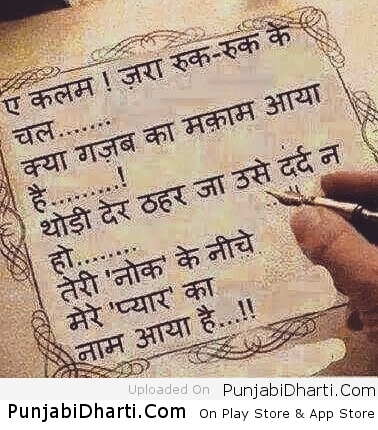 ए कलम ! ज़रा रुक-रुक के
चल.......
क्या गज़ब का मक़ाम आया
है..........!
थोड़ी देर ठहर जा उसे दर्द न
हो........
तेरी 'नोक' के नीचे
मेरे 'प्यार' का
नाम आया है...!!
Uploaded On PunjabiDharti.Com
PunjabiDharti.Com On Play Store & App Store